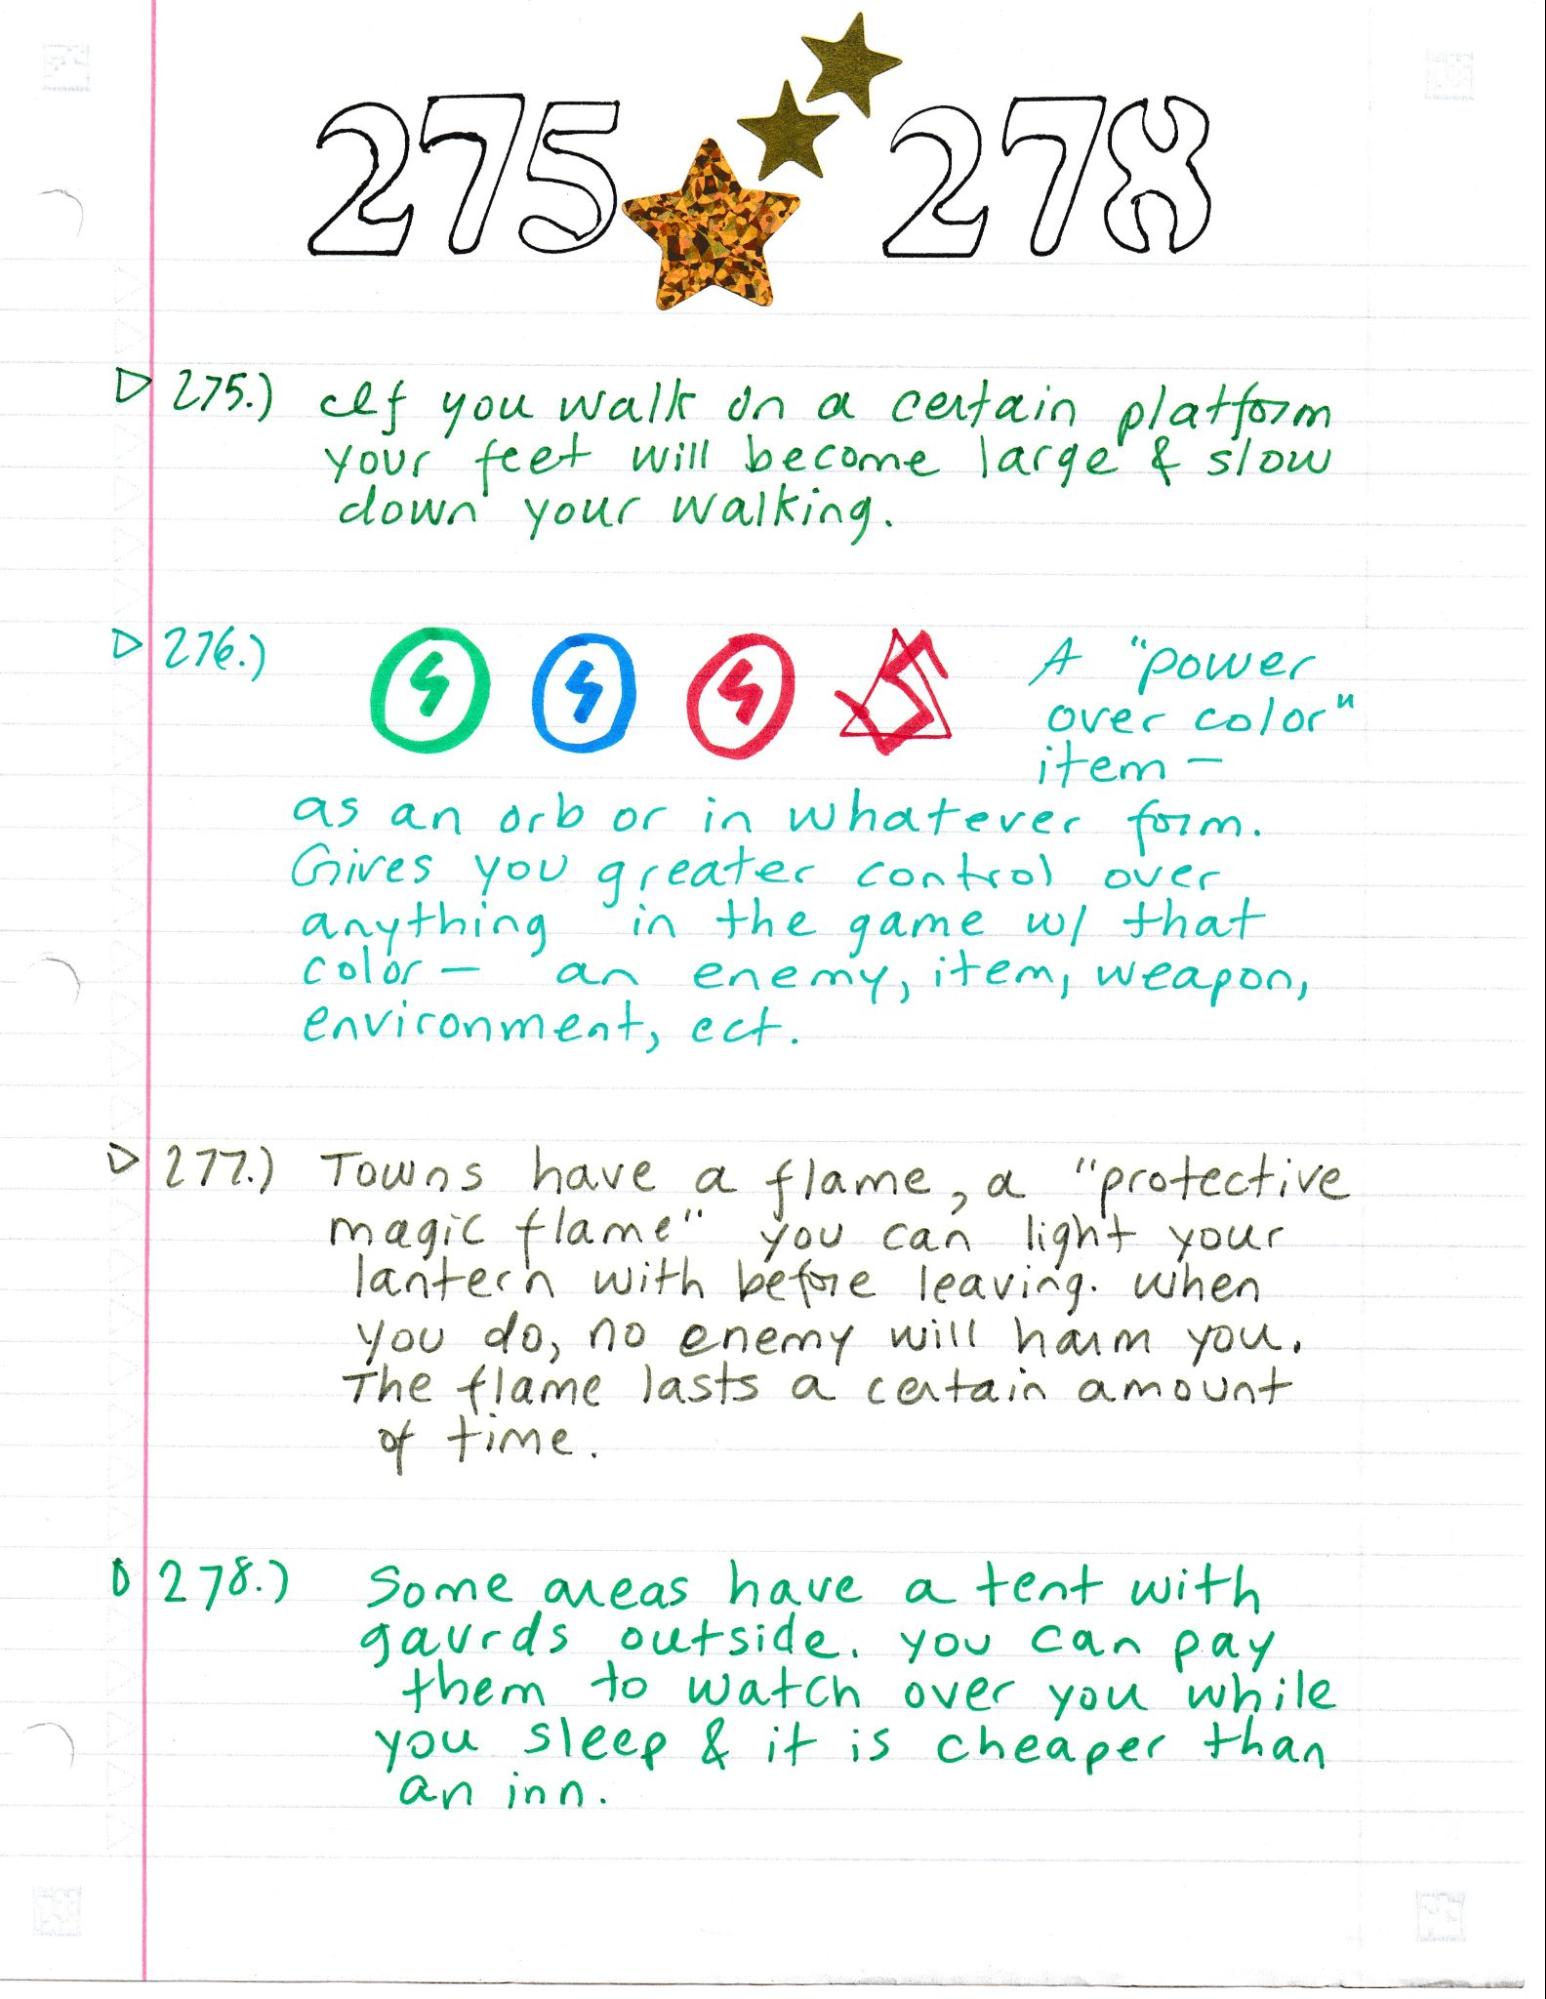 275 278
275.) If you walk on a certain platform
your feet will become large & slow
down your walking.
276.) A "power
over color"
item -
as an orb or in whatever form.
Gives you greater control over
anything in the game w/ that
color - an enemy, item, weapon,
environment, ect.
277.) Towns have a flame, a "protective
magic flame" you can light your
lantern with before leaving. When
you do, no enemy will harm you.
The flame lasts a certain amount
of time.
278.) Some areas have a tent with
gaurds outside. you can pay
them to watch over you while
you sleep & it is cheaper than
an inn.